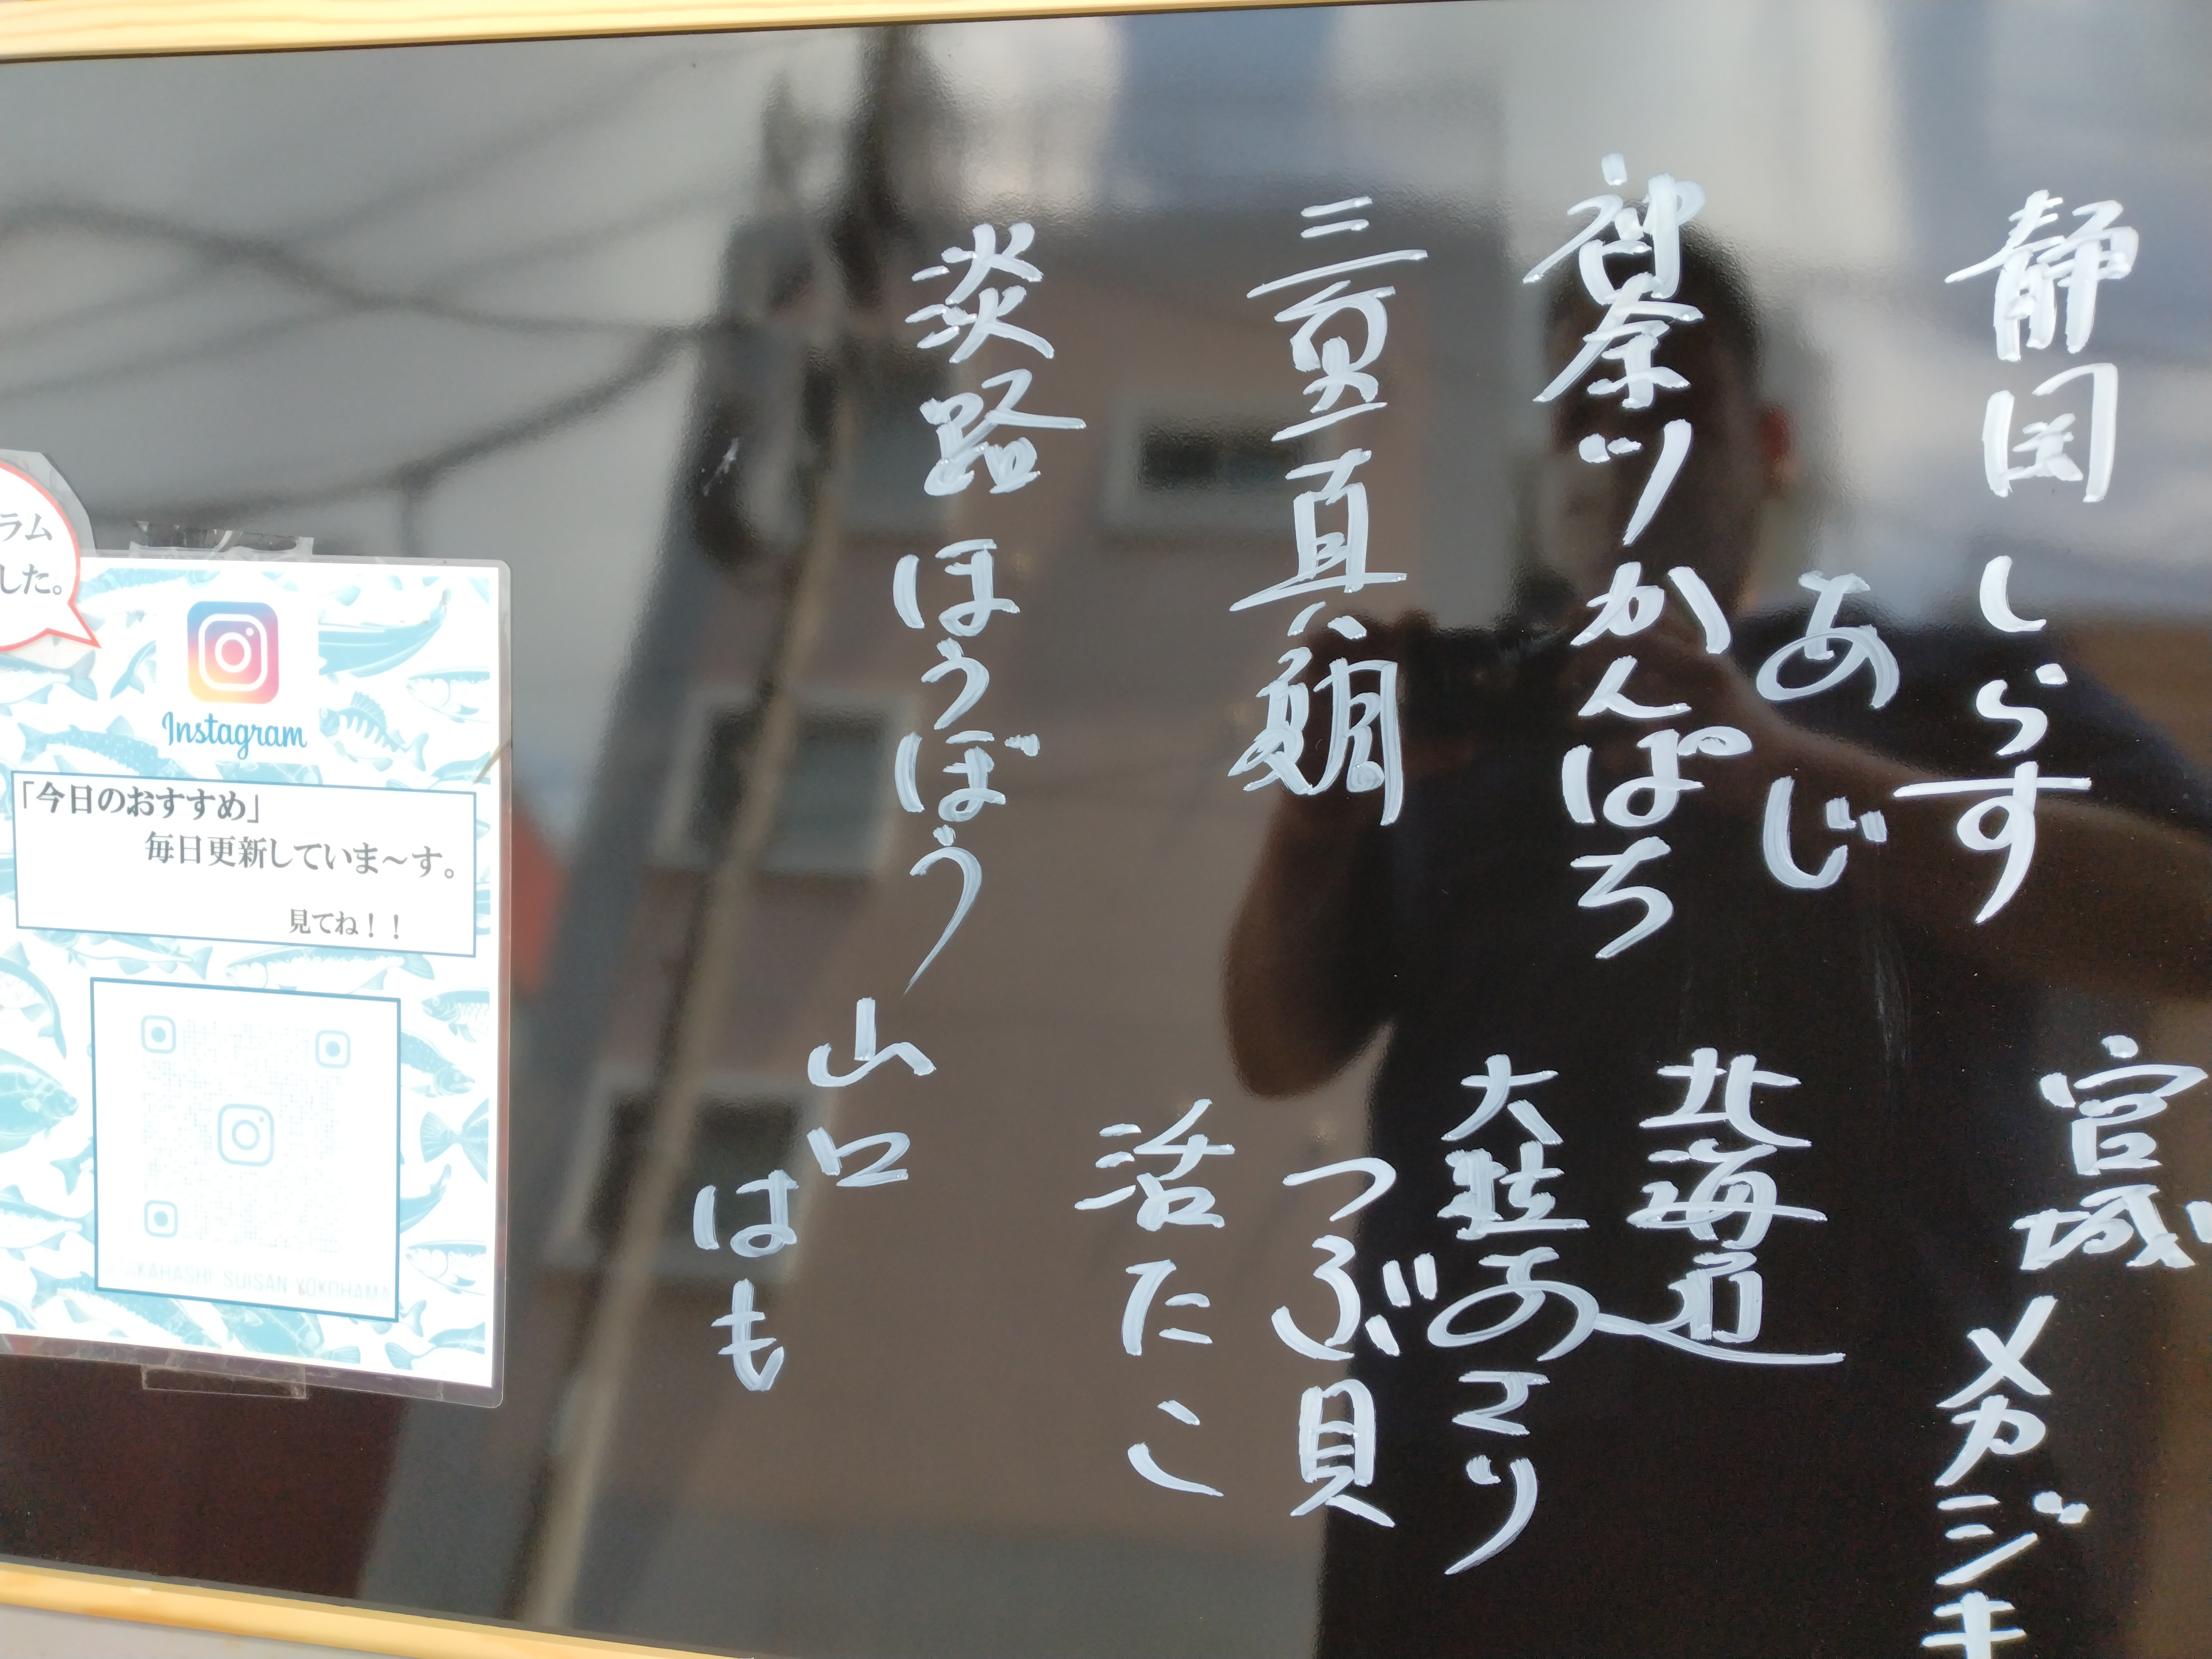 静岡 しらす
あじ
神奈川 かんぱち
三重 真鯛
淡路 ほうぼう
宮城 メカジキ
北海道
大粒あさり
つぶ貝
活たこ
山口
はも
ラム
した。
Instagram
「今日のおすすめ」
毎日更新していま～す。
見てね！！
TAKAHASHI SUISAN YOKOHAMA